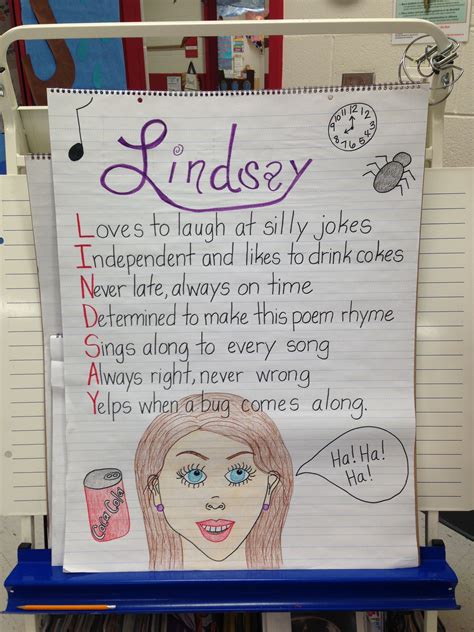 Lindsay
Loves to laugh at silly jokes
Independent and likes to drink cokes
Never late, always on time
Determined to make this poem rhyme
Sings along to every song
Always right, never wrong
Yelps when a bug comes along.
Ha! Ha!
Ha!
Coca Cola
12
1
2
3
4
5
6
7
8
9
10
11